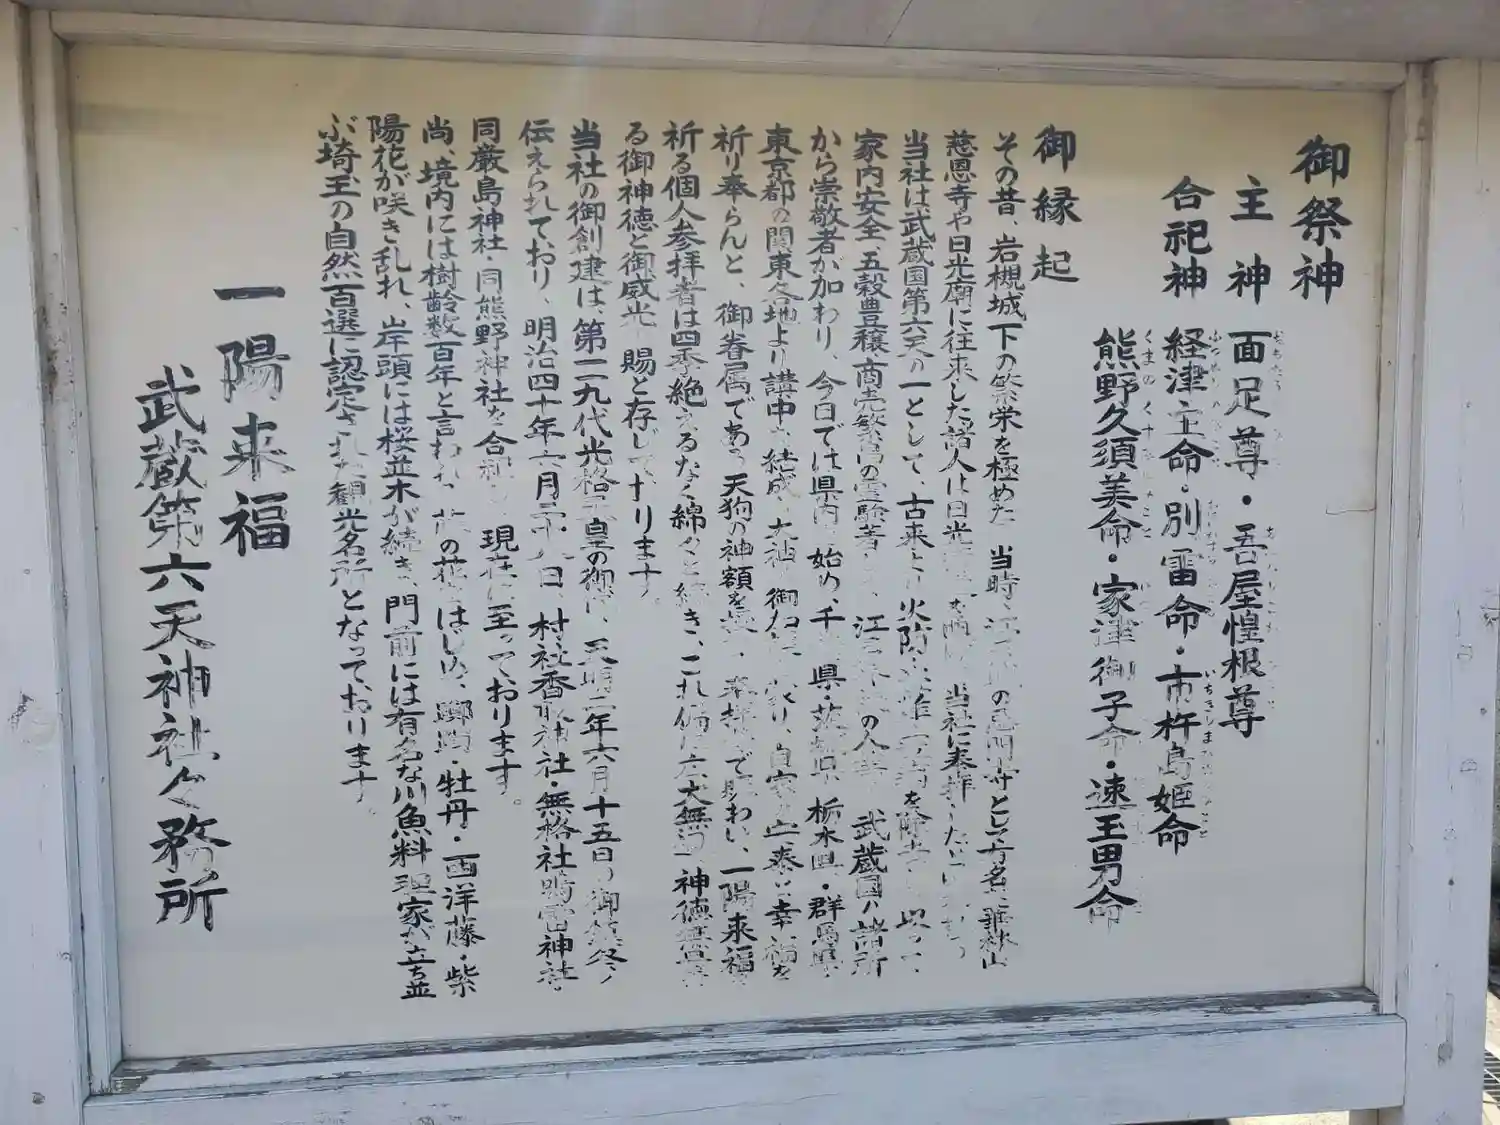 御祭神
主神 面足尊・吾屋惶根尊
合祀神 経津主命・別雷命・市杵島姫命
熊野久須美命・家津御子命・速玉男命
御縁起
その昔、岩槻城下の繁栄を極めた当時、江戸の鬼門寺として有名な華林山
慈恩寺や日光廟に往来した諸人は日光 当社に奉拝
当社は武蔵国第六天の一として、古来より火防 を除去
家内安全、五穀豊穣、商売繁昌の霊験著 江 の人 武蔵国の諸所
から崇敬者が加わり、今日では県内 始め、千葉県・茨城県・栃木県・群馬県
東京都の関東各地より講中を結成、大神の御 自家の安泰と幸福を
祈り奉らんと、御眷属である天狗の神額を で賑わい、一陽来福
祈る個人参拝者は四季絶えるなく綿々と続き、これ偏に広大無辺、神徳無
る御神徳と御威光の賜と存じております。
当社の御創建は、第一一九代光格天皇の御代、天明二年六月十五日の御鎮祭と
伝えられており、明治四十年六月 日、村社香取神社・無格社鳴雷神社・
同厳島神社・同熊野神社を合祀し、現在に至っております。
尚、境内には樹齢数百年と言われる藤の花をはじめ、躑躅・牡丹・西洋藤・紫
陽花が咲き乱れ、岸頭には桜並木が続き、門前には有名な川魚料理家が立ち並
ぶ埼玉の自然百選に認定された観光名所となっております。
一陽来福
武蔵第六天神社々務所